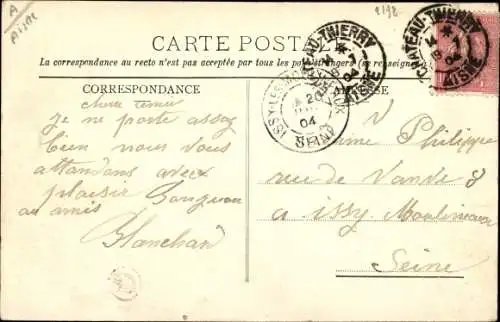 A
Aisne
2198
CARTE POSTALE
La correspondance au recto n'est pas acceptée par tous les pays étrangers (se renseigner
CORRESPONDANCE
ADRESSE
CHATEAU-THIERRY
AISNE
04
CHATEAU-THIERRY
AISNE
04
ISSY-LES-MOULINEAUX
20
04
SEINE
chère
je me porte assez
bien nous vous
attandons avec
plaisir
au amis
Blanchard
V
Philippe
rue de Vanves 8
a issy Moulineaux
Seine